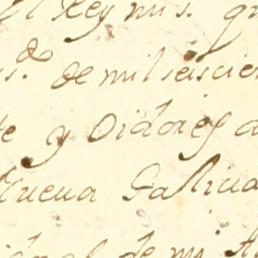 el Rey mi s.
s.do de mil seiscien
e y Oidores d
Nueva Galicia
de mi A